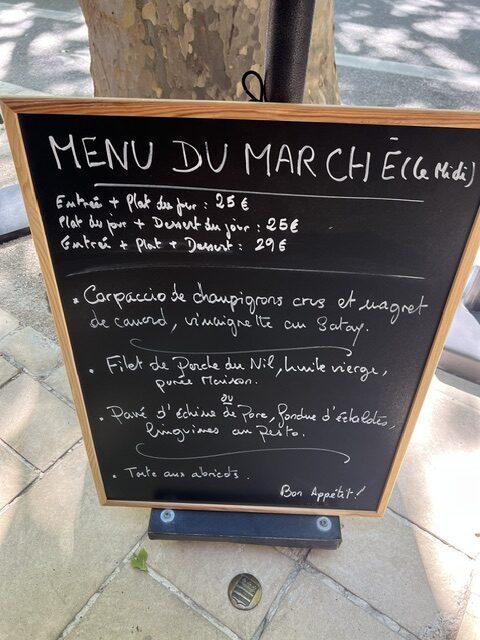 MENU DU MARCHÉ (Le Midi)
Entrée + Plat du jour : 25 €
Plat du jour + Dessert du jour : 25€
Entrée + Plat + Dessert : 29€
• Carpaccio de champignons crus et magret
de canard, vinaigrette au Satay.
• Filet de Perche du Nil, huile vierge,
purée Maison.
ou
• Pavé d'échine de Porc, fondue d'échalotes,
linguines au Pesto.
• Tarte aux abricots.
Bon Appétit !